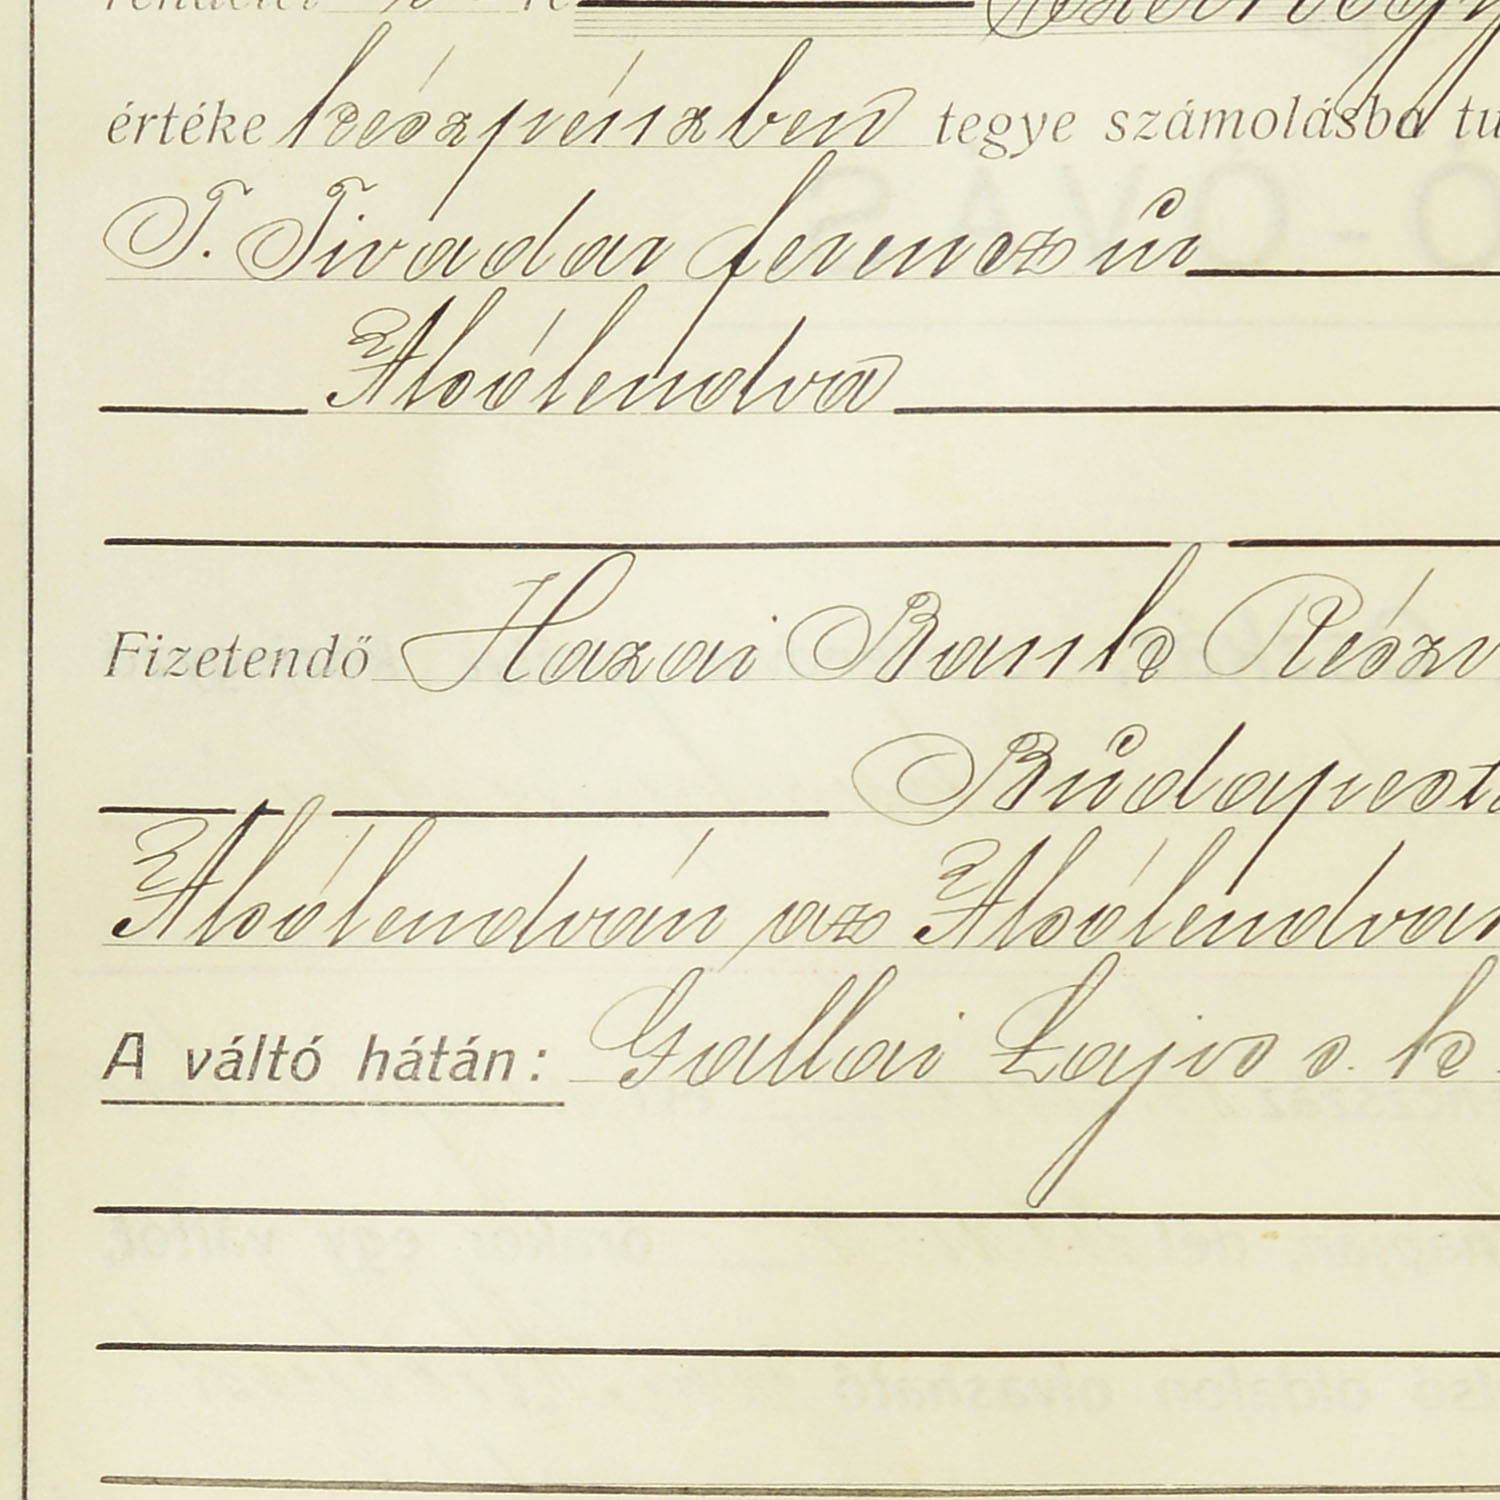 értéke készpénzben tegye számolásba
T. Tivadar ferencz úr
Alsólendva
Fizetendő Hazai Bank Részv
Budapest
Alsólendván az Alsólendvai
A váltó hátán: Gallai Lajos s. k.